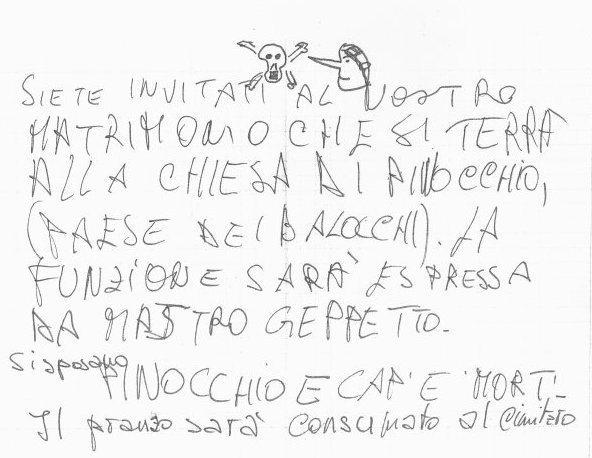 SIETE INVITATI AL NOSTRO
MATRIMONIO CHE SI TERRÀ
ALLA CHIESA DI PINOCCHIO,
(PAESE DEI BALOCCHI). LA
FUNZIONE SARÀ ESPRESSA
DA MASTRO GEPPETTO.
Si sposano
PINOCCHIO E CAP' E MORT'.
Il pranzo sarà consumato al Cimitero